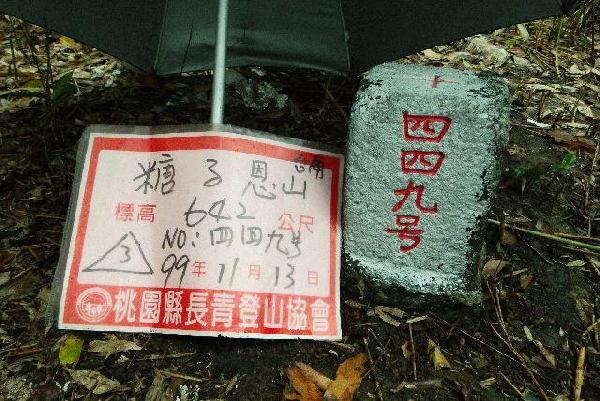 糖子恩山
台南
標高 642 公尺
3 NO:四四九号
99年11月13日
桃園縣長青登山協會
四四九号